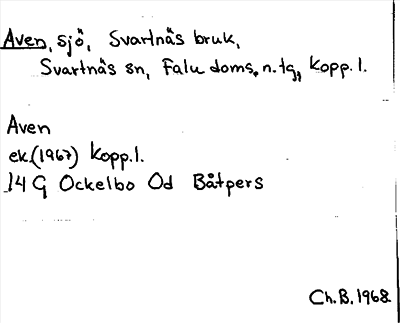 Aven, sjö, Svartnäs bruk,
Svartnäs sn, Falu doms. n. tg, Kopp. l.
Aven
ek.(1967) Kopp.l.
14 G Ockelbo Od Båtpers
Ch.B.1968